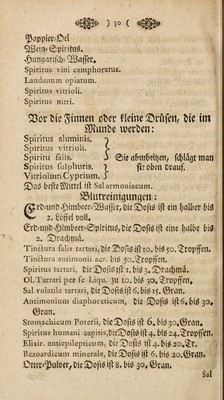 ) 30 (
Pappier-Oel
Wein-Spiritus.
Hungarisch-Wasser.
Spiritus vini camphoratus.
Laudanum opiatum.
Spiritus vitrioli.
Spiritus nitri.
Vor die Finnen oder kleine Drüsen, die im
Munde werden:
Spiritus aluminis.
Spiritus vitrioli.
Spiritus salis.
Spiritus sulphuris.
Vitriolum Cyprium.
Sie abzubeitzen, schlägt man
sie oben drauf.
Das beste Mittel ist Sal armoniacum.
Blutreinigungen:
Erd-und-Himbeer-Wasser, die Dosis ist ein halber bis
2. Löffel voll.
Erd-und-Himbeer-Spiritus, die Dosis ist eine halbe bis
2. Drachmä.
Tinctura salis tartari, die Dosis ist 10. bis 50. Tropffen.
Tinctura antimonii acr. bis 30. Tropffen.
Spiritus tartari, die Dosis ist 1. bis 3. Drachmä.
Ol. Tartari per se Liqu. zu 10. bis 30. Tropffen.
Sal volatile tartari, die Dosis ist 5. bis 15. Gran.
Antimonium diaphoreticum, die Dosis ist 6. bis 30.
Gran.
Stomachicum Poterii, die Dosis ist 6. bis 30. Gran.
Spiritus humani capitis, die Dosis ist 4. bis 20. Tropffen.
Elixir. antiepilepticum, die Dosis ist 4. bis 20. Tr.
Bezoardicum minerale, die Dosis ist 6. bis 20. Gran.
Otter-Pulver, die Dosis ist 8. bis 30. Gran.
Sal